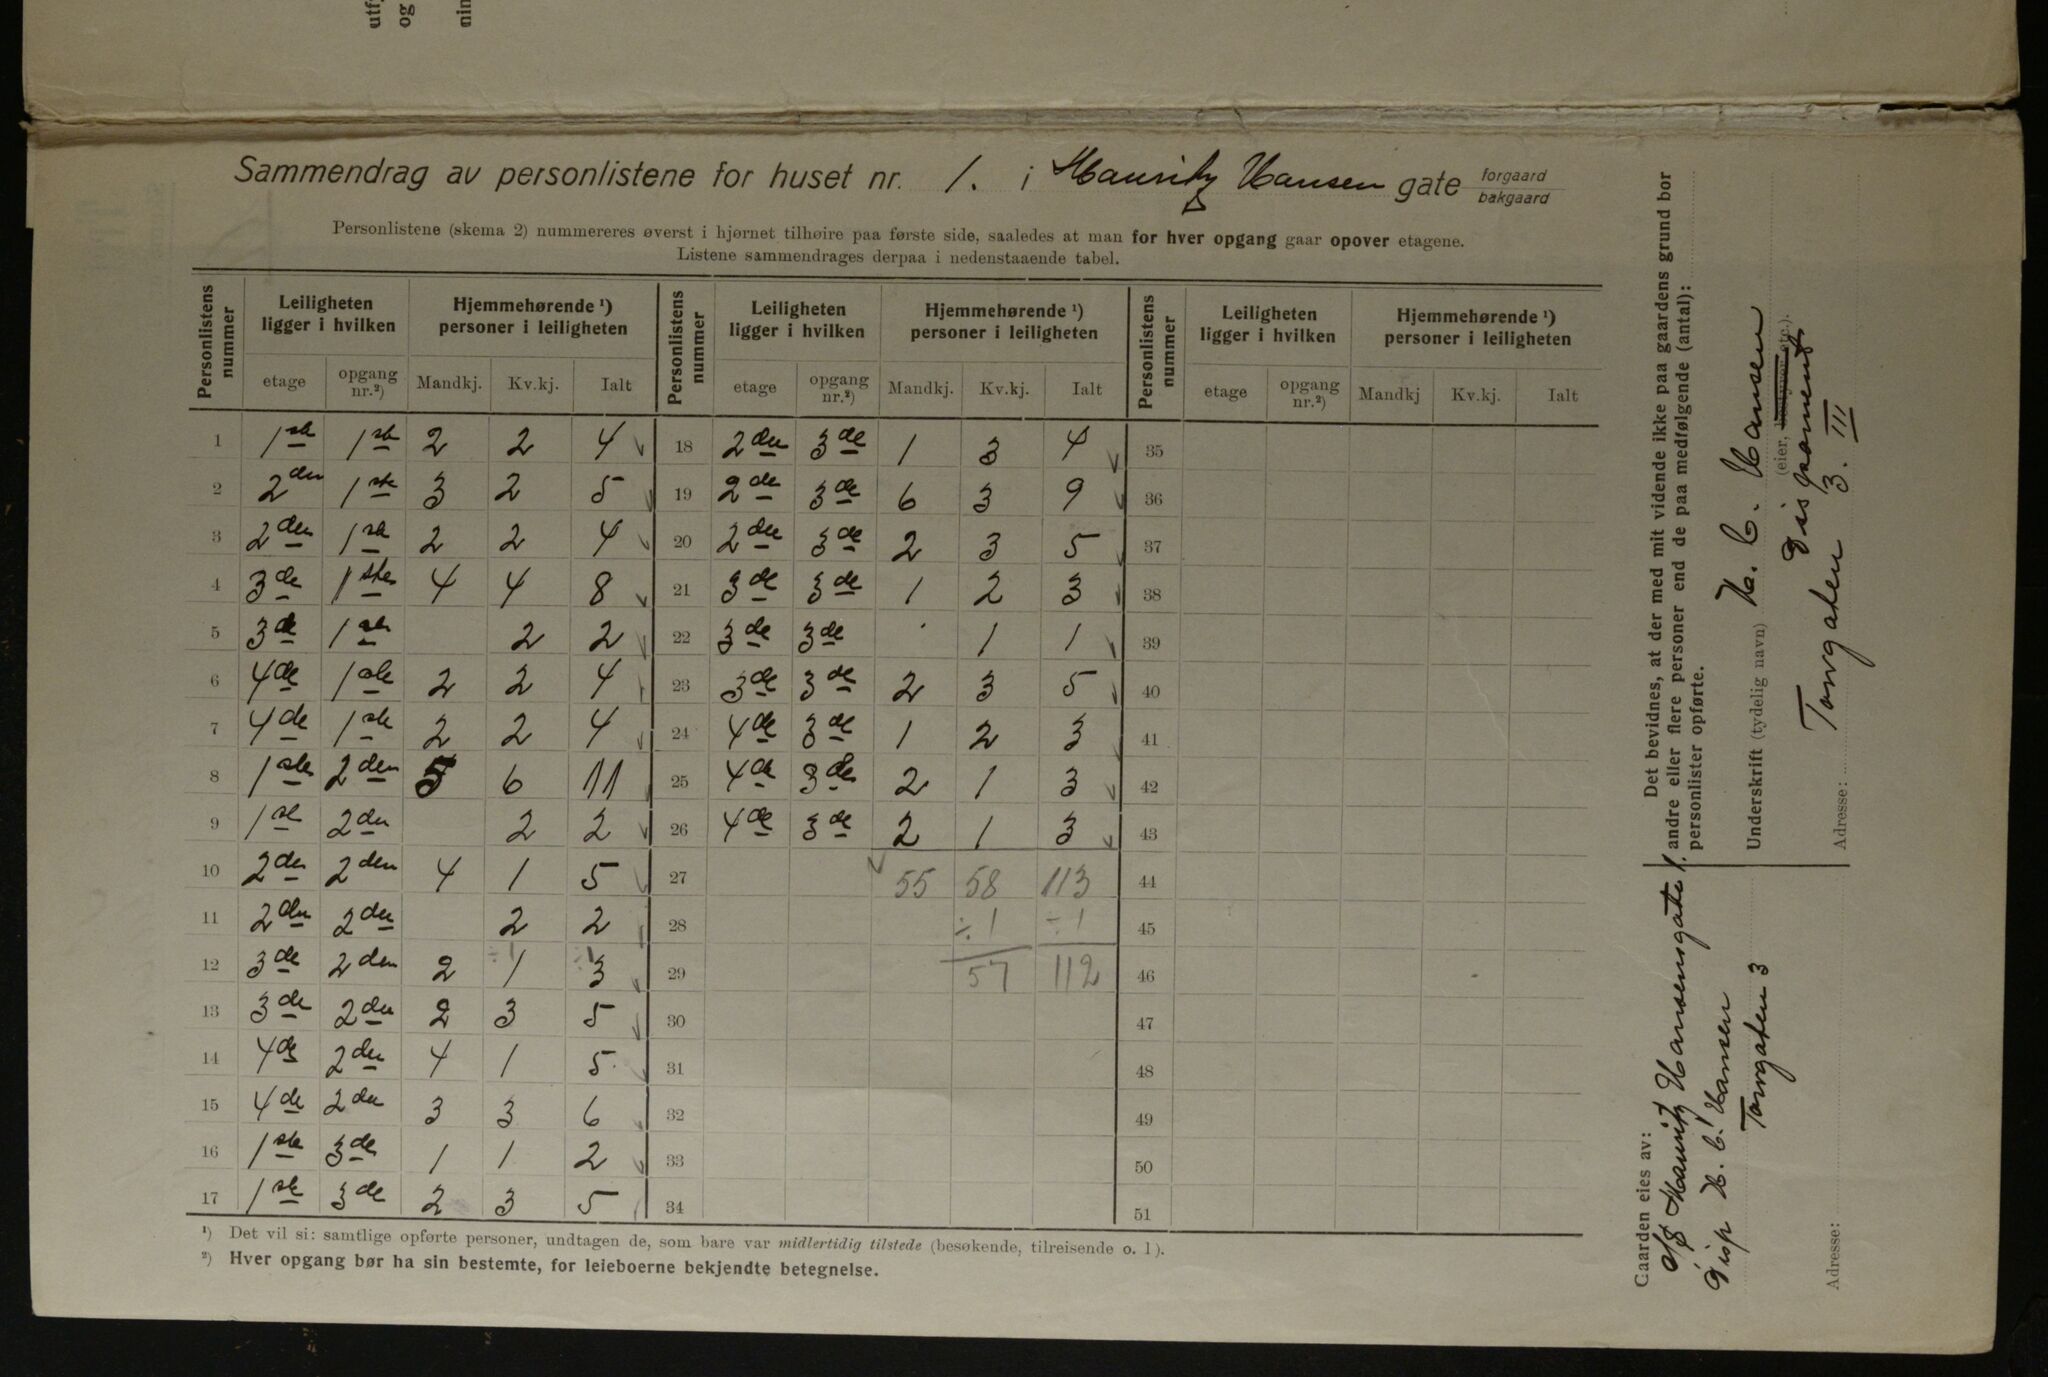 utf
og
nin
Sammendrag av personlistene for huset nr. 1. i Mauritz Hansen gate forgaard bakgaard
Personlistene (skema 2) nummereres øverst i hjørnet tilhøire paa første side, saaledes at man for hver opgang gaar opover etagene.
Listene sammendrages derpaa i nedenstaaende tabel.
Personlistens nummer | Leiligheten ligger i hvilken | Hjemmehørende ¹) personer i leiligheten | Personlistens nummer | Leiligheten ligger i hvilken | Hjemmehørende ¹) personer i leiligheten | Personlistens nummer | Leiligheten ligger i hvilken | Hjemmehørende ¹) personer i leiligheten
etage | opgang nr.²) | Mandkj. | Kv.kj. | Ialt | etage | opgang nr.²) | Mandkj. | Kv.kj. | Ialt | etage | opgang nr.²) | Mandkj | Kv.kj. | Ialt
1 | 1ste | 1ste | 2 | 2 | 4 | 18 | 2den | 3de | 1 | 3 | 4 | 35
2 | 2den | 1ste | 3 | 2 | 5 | 19 | 2de | 3de | 6 | 3 | 9 | 36
3 | 2den | 1ste | 2 | 2 | 4 | 20 | 2den | 3de | 2 | 3 | 5 | 37
4 | 3de | 1ste | 4 | 4 | 8 | 21 | 3de | 3de | 1 | 2 | 3 | 38
5 | 3de | 1ste | | 2 | 2 | 22 | 3de | 3de | | 1 | 1 | 39
6 | 4de | 1ste | 2 | 2 | 4 | 23 | 3de | 3de | 2 | 3 | 5 | 40
7 | 4de | 1ste | 2 | 2 | 4 | 24 | 4de | 3de | 1 | 2 | 3 | 41
8 | 1ste | 2den | 5 | 6 | 11 | 25 | 4de | 3de | 2 | 1 | 3 | 42
9 | 1ste | 2den | | 2 | 2 | 26 | 4de | 3de | 2 | 1 | 3 | 43
10 | 2den | 2den | 4 | 1 | 5 | 27 | | | 55 | 58 | 113 | 44
11 | 2den | 2den | | 2 | 2 | 28 | | | | ÷1 | ÷1 | 45
12 | 3de | 2den | 2 | ÷1 1 | ÷1 3 | 29 | | | | 57 | 112 | 46
13 | 3de | 2den | 2 | 3 | 5 | 30 | 47
14 | 4de | 2den | 4 | 1 | 5 | 31 | 48
15 | 4de | 2den | 3 | 3 | 6 | 32 | 49
16 | 1ste | 3de | 1 | 1 | 2 | 33 | 50
17 | 1ste | 3de | 2 | 3 | 5 | 34 | 51
¹) Det vil si: samtlige opførte personer, undtagen de, som bare var midlertidig tilstede (besøkende, tilreisende o. l).
²) Hver opgang bør ha sin bestemte, for leieboerne bekjendte betegnelse.
Det bevidnes, at der med mit vidende ikke paa gaardens grund bor
andre eller flere personer end de paa medfølgende (antal):
personlister opførte.
Underskrift (tydelig navn) H. C. Hansen
(eier, bestyrer etc.).
Disponent
Adresse: Torvgaten 3. III
Gaarden eies av:
A/S Mauritz Hansensgate 1.
Disp H. C. Hansen
Torvgaten 3
Adresse: